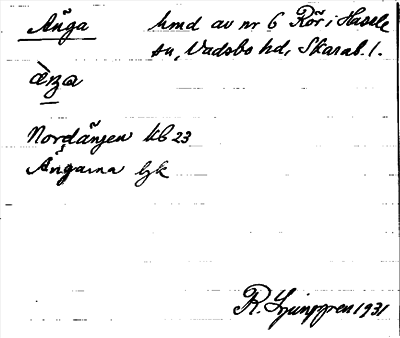 Änga hmd av nr 6 Rör i Hassle
sn, Vadsbo hd, Skarab. l.
Nordängen kb 23
Ängarna ljk
R. Ljunggren 1931